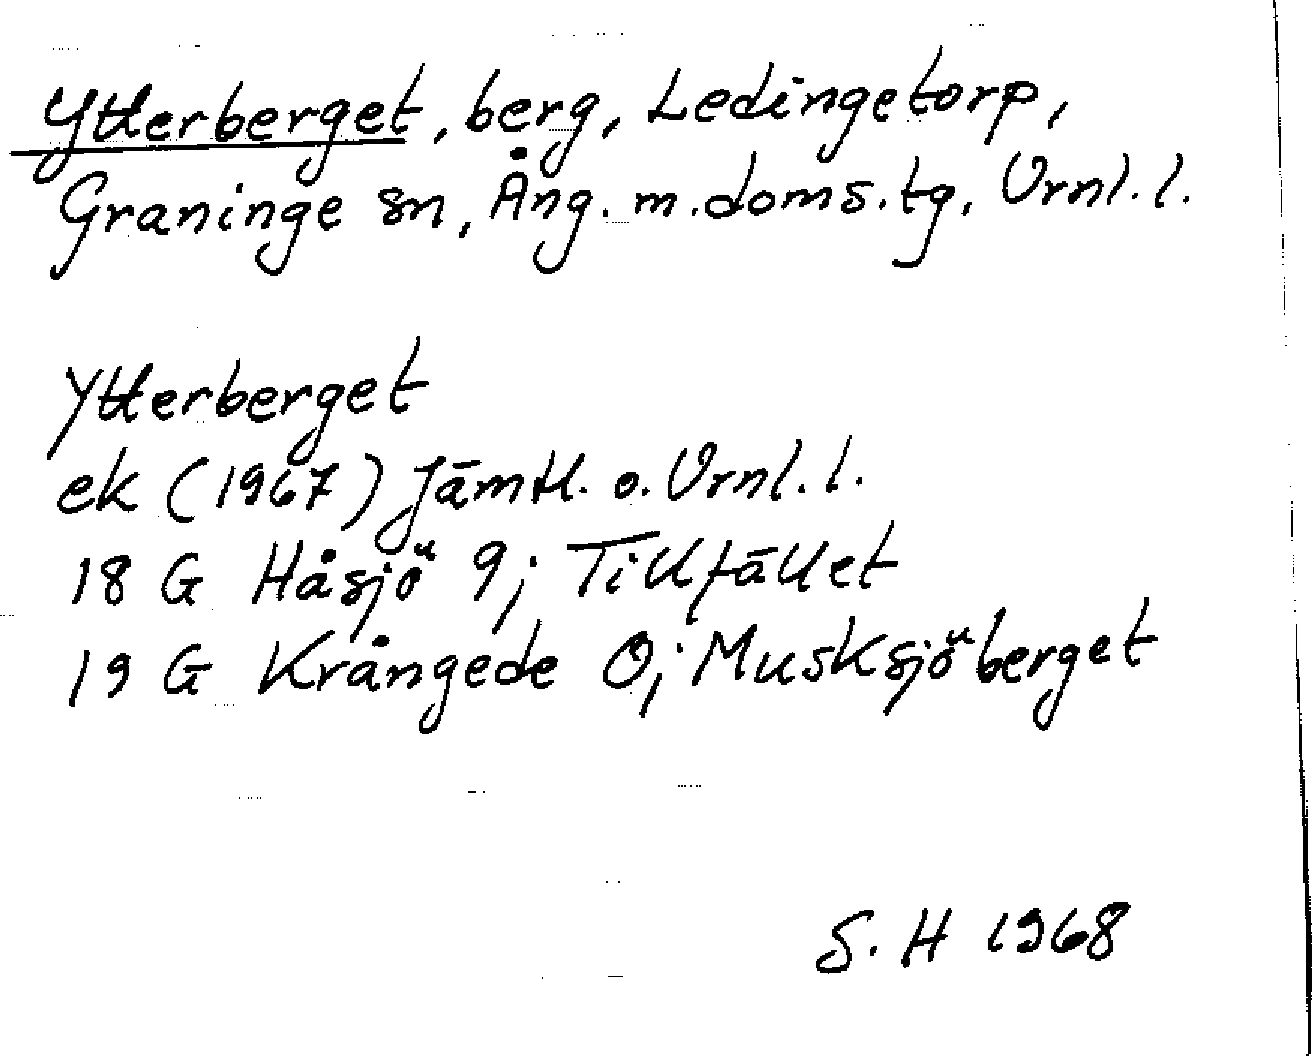 Ytterberget, berg, Ledingetorp,
Graninge sn, Ång. m.doms.tg, Vrnl.l.
Ytterberget
ek (1967) Jämtl. o. Vrnl.l.
18 G Håsjö 9; Tillfället
19 G Krångede O; Musksjöberget
S. H 1968